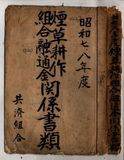 昭和七八年度
煙草耕作
組合融通金関係書類
共済組合